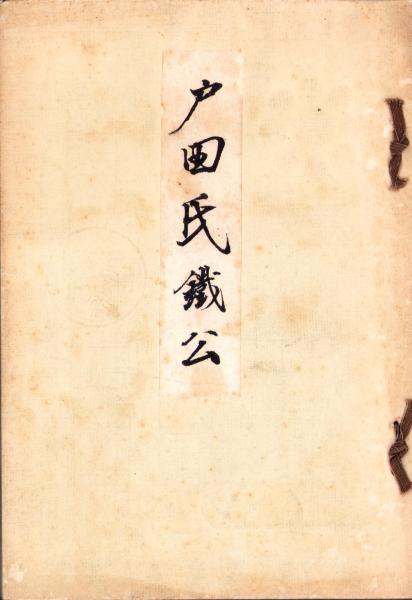 戸田氏鐵公